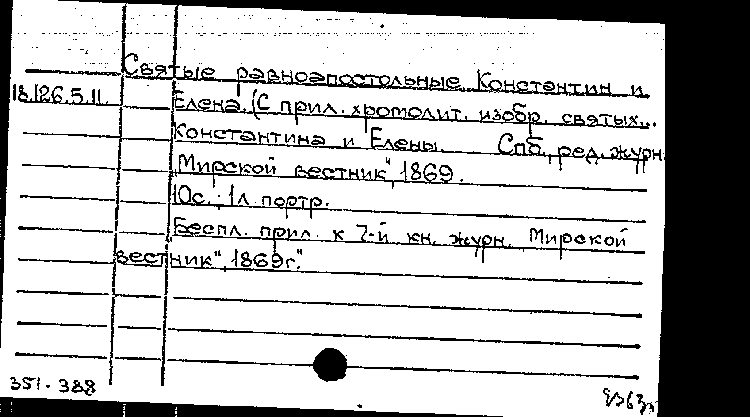 Святые равноапостольные Константин и
18.126.5.11. Елена. (С прил. хромолит. изобр. святых..
Константина и Елены. Спб., ред. журн.
„Мирской вестник", 1869.
10с.; 1л. портр.
Беспл. прил. к 7-й кн. журн. Мирской
вестник", 1869г."
351-388